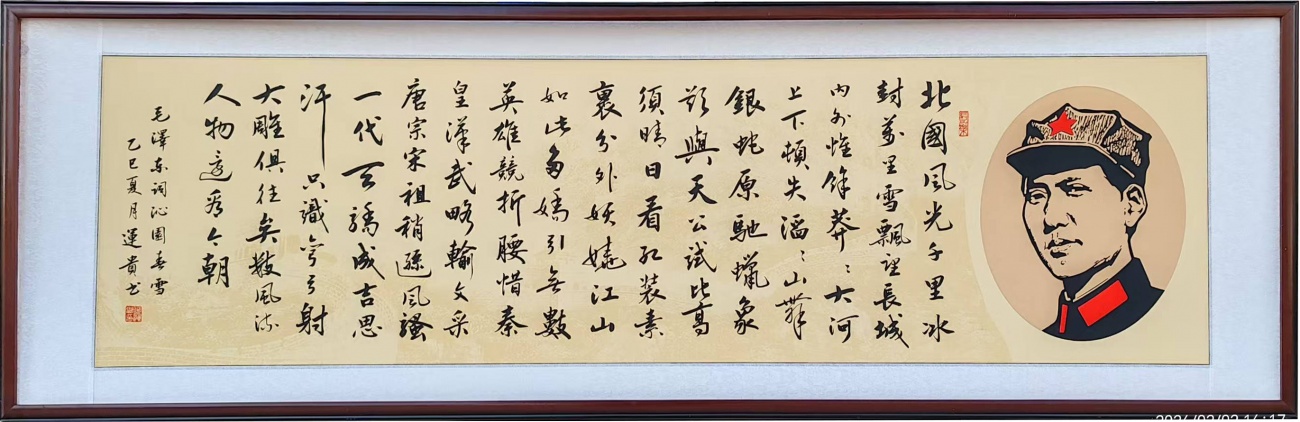 北國風光千里冰
封萬里雪飄望長城
内外惟餘莽〻大河
上下頓失滔〻山舞
銀蛇原馳蠟象
欲與天公試比高
須晴日看紅裝素
裹分外妖嬈江山
如此多嬌引無數
英雄競折腰惜秦
皇漢武略輸文采
唐宗宋祖稍遜風騷
一代天驕成吉思
汗只識彎弓射
大雕俱往矣數風流
人物還看今朝
毛澤東詞沁園春雪
乙巳夏月運貴书